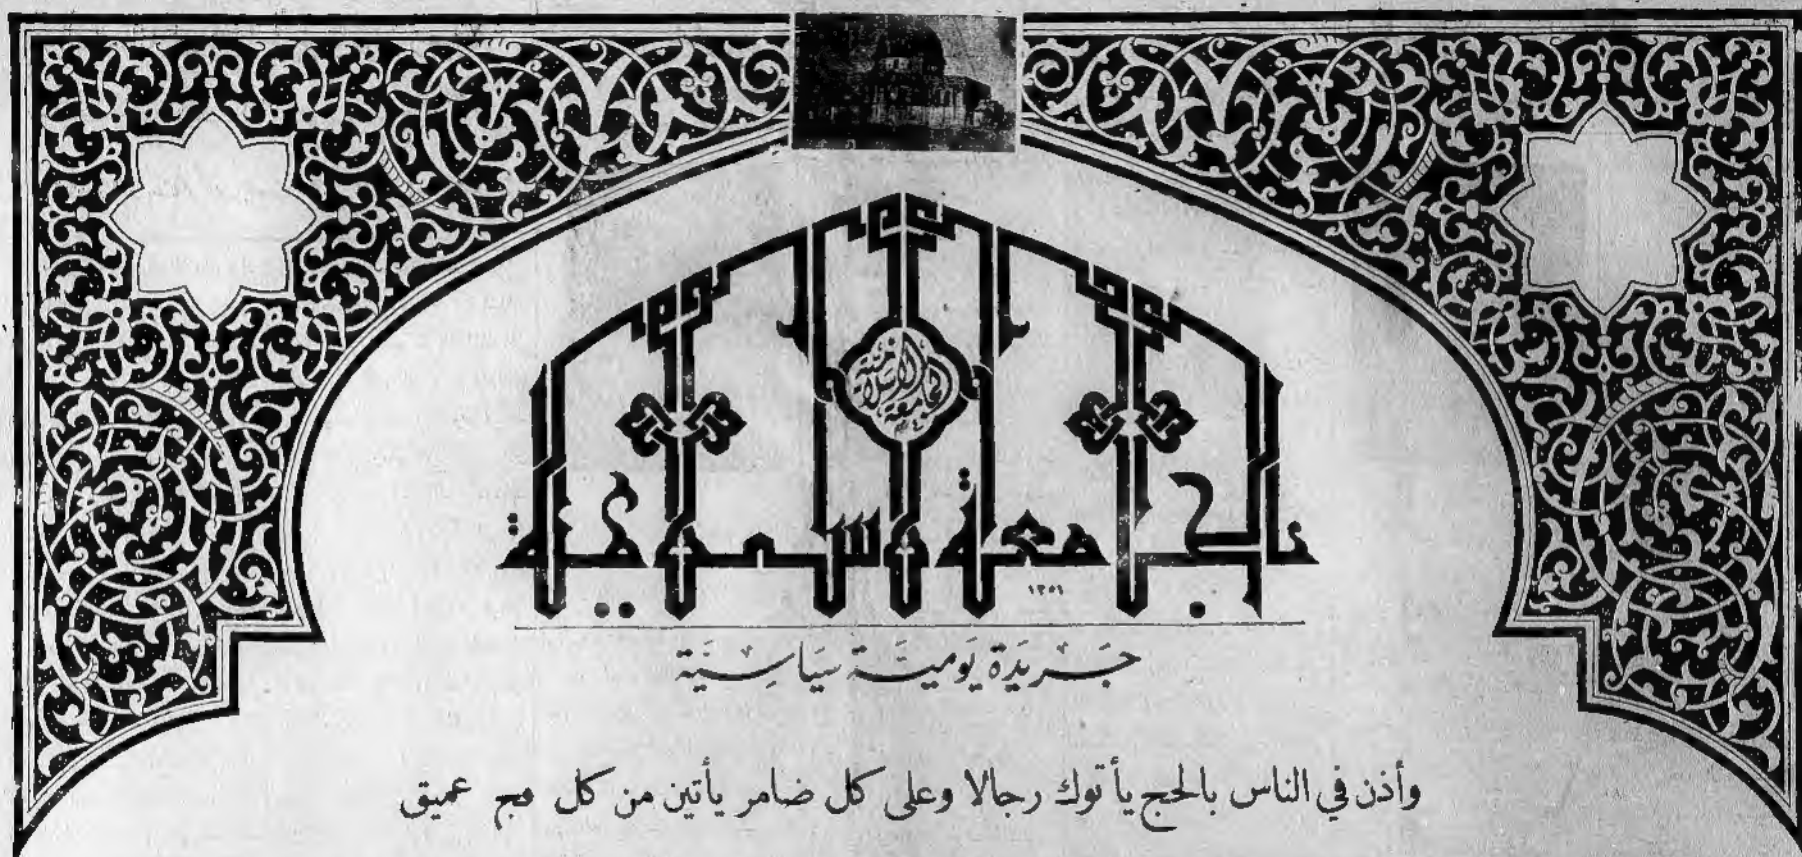 الجامعة الإسلامية
الجامعة الإسلامية
١٣٥١
جريدة يومية سياسية
وأذن في الناس بالحج يأتوك رجالا وعلى كل ضامر يأتين من كل فج عميق